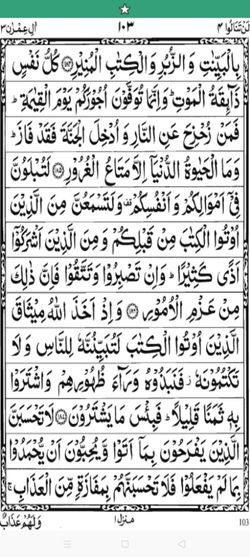 لَنْ تَنَالُوا ۴
۱۰۳
اٰلِ عِمْرٰن ۳
بِالْبَيِّنٰتِ وَ الزُّبُرِ وَ الْكِتٰبِ الْمُنِيْرِ ﴿۱۸۴﴾ كُلُّ نَفْسٍ
ذَآىِٕقَةُ الْمَوْتِ ؕ وَ اِنَّمَا تُوَفَّوْنَ اُجُوْرَكُمْ يَوْمَ الْقِيٰمَةِ ؕ
فَمَنْ زُحْزِحَ عَنِ النَّارِ وَ اُدْخِلَ الْجَنَّةَ فَقَدْ فَازَ ؕ
وَ مَا الْحَيٰوةُ الدُّنْيَاۤ اِلَّا مَتَاعُ الْغُرُوْرِ ﴿۱۸۵﴾ لَتُبْلَوُنَّ
فِيْۤ اَمْوَالِكُمْ وَ اَنْفُسِكُمْ ۫ وَ لَتَسْمَعُنَّ مِنَ الَّذِيْنَ
اُوْتُوا الْكِتٰبَ مِنْ قَبْلِكُمْ وَ مِنَ الَّذِيْنَ اَشْرَكُوْۤا
اَذًى كَثِيْرًا ؕ وَ اِنْ تَصْبِرُوْا وَ تَتَّقُوْا فَاِنَّ ذٰلِكَ
مِنْ عَزْمِ الْاُمُوْرِ ﴿۱۸۶﴾ وَ اِذْ اَخَذَ اللّٰهُ مِيْثَاقَ
الَّذِيْنَ اُوْتُوا الْكِتٰبَ لَتُبَيِّنُنَّهٗ لِلنَّاسِ وَ لَا
تَكْتُمُوْنَهٗ ؗ فَنَبَذُوْهُ وَرَآءَ ظُهُوْرِهِمْ وَ اشْتَرَوْا
بِهٖ ثَمَنًا قَلِيْلًا ؕ فَبِئْسَ مَا يَشْتَرُوْنَ ﴿۱۸۷﴾ لَا تَحْسَبَنَّ
الَّذِيْنَ يَفْرَحُوْنَ بِمَاۤ اَتَوْا وَّ يُحِبُّوْنَ اَنْ يُّحْمَدُوْا
بِمَا لَمْ يَفْعَلُوْا فَلَا تَحْسَبَنَّهُمْ بِمَفَازَةٍ مِّنَ الْعَذَابِ ۚ
وَ لَهُمْ عَذَابٌ
منزل ۱
103